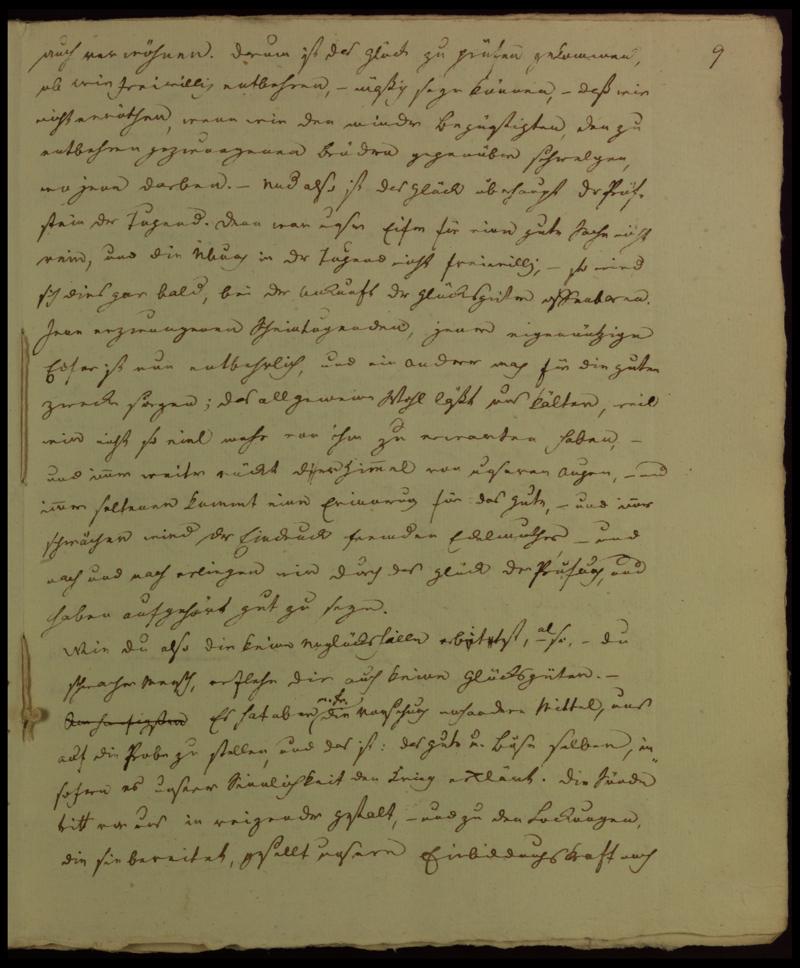 9
auch verwöhnen. Darum ist das Glück zu prüfen gekommen,
ob wir freiwillig entbehren, – mäßig seyn können, – daß wir
nicht erröthen, wenn wir den minder Begünstigten, den zu
entbehren gezwungenen Brüdern gegenüber schwelgen,
wo jene darben. – Und also ist das Glück überhaupt der Prüf-
stein der Tugend. Denn war unser Eifer für eine gute Sache nicht
rein, und die Übung in der Tugend nicht freiwillig, – so wird
sich dies gar bald, bei der Ankunft der Glücksgüter offenbaren.
Jene erzwungenen Scheintugenden, jener eigennützige
Eifer ist nun entbehrlich, und ein anderer mag für die guten
Zwecke sorgen; das allgemeine Wohl läßt uns kälter, weil
wir nicht so viel mehr von ihm zu erwarten haben, –
und immer weiter rückt dieser Himmel von unseren Augen, – und
immer seltener kommt eine Erinnerung für das Gute, – und immer
schwächer wird der Eindruck fremden Edelmuthes, – und
nach und nach erliegen wir durch das Glück der Prüfung, und
haben aufgehört gut zu seyn.
Wie du also dir keine Unglücksfälle erbittest, also, – du
schwacher Mensch, erflehe dir auch keine Glücksgüter. –
Es hat aber die Vorsehung noch andere Mittel, uns
auf die Probe zu stellen, und das ist: das Gute u. Böse selber, in
sofern es unserer Sinnlichkeit den Krieg erklärt. Die Sünde
tritt vor uns in reizender Gestalt, – und zu den Lockungen,
die sie bereitet, gesellt unsere Einbildungskraft noch